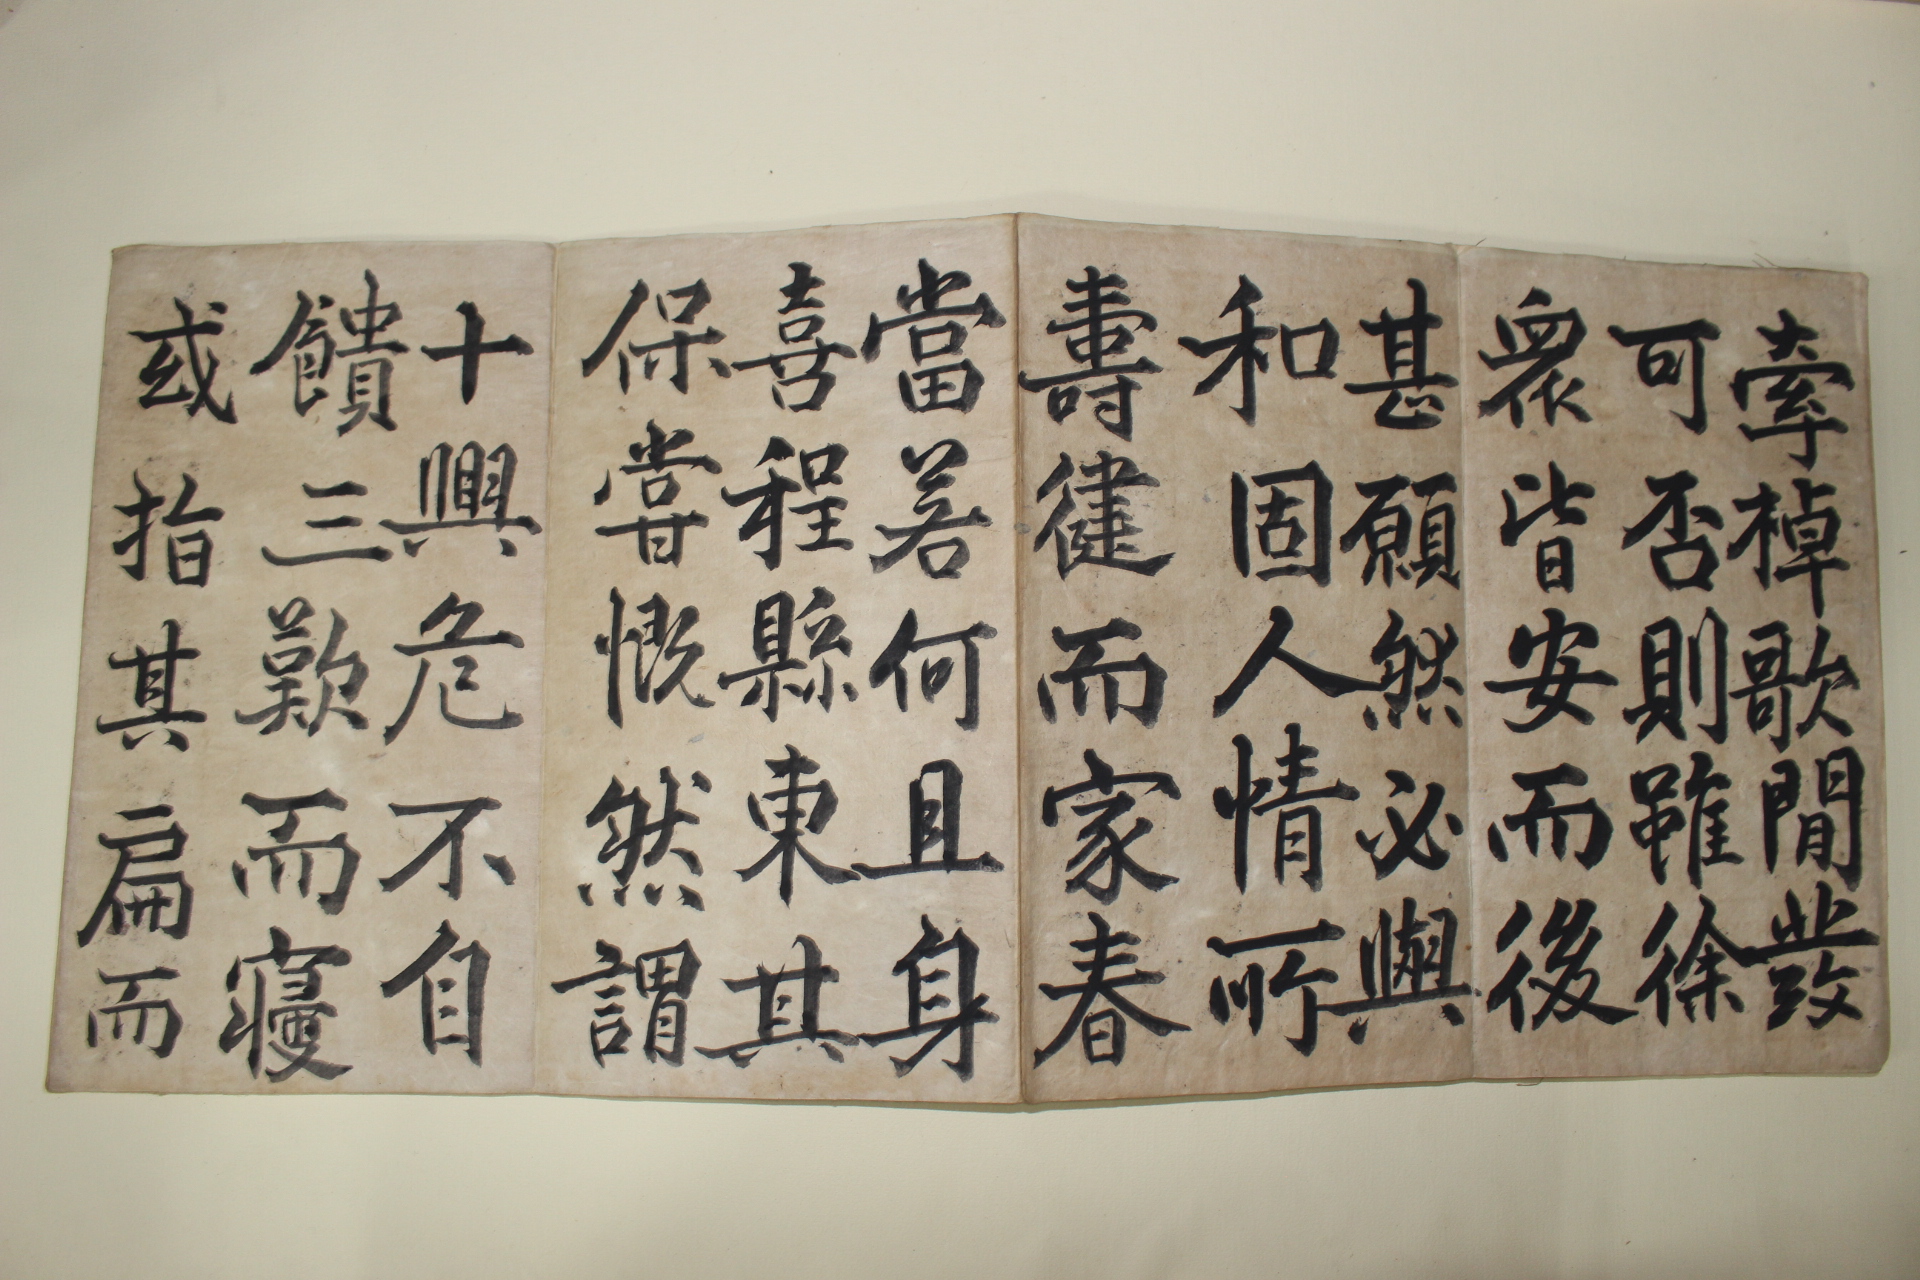 牽棹歌間發
可否則雖徐
衆皆安而後
甚願然必與
和固人情所
壽健而家春
當若何且身
喜程縣東其
保嘗慨然謂
十興危不自
饋三歎而寢
或指其扁而